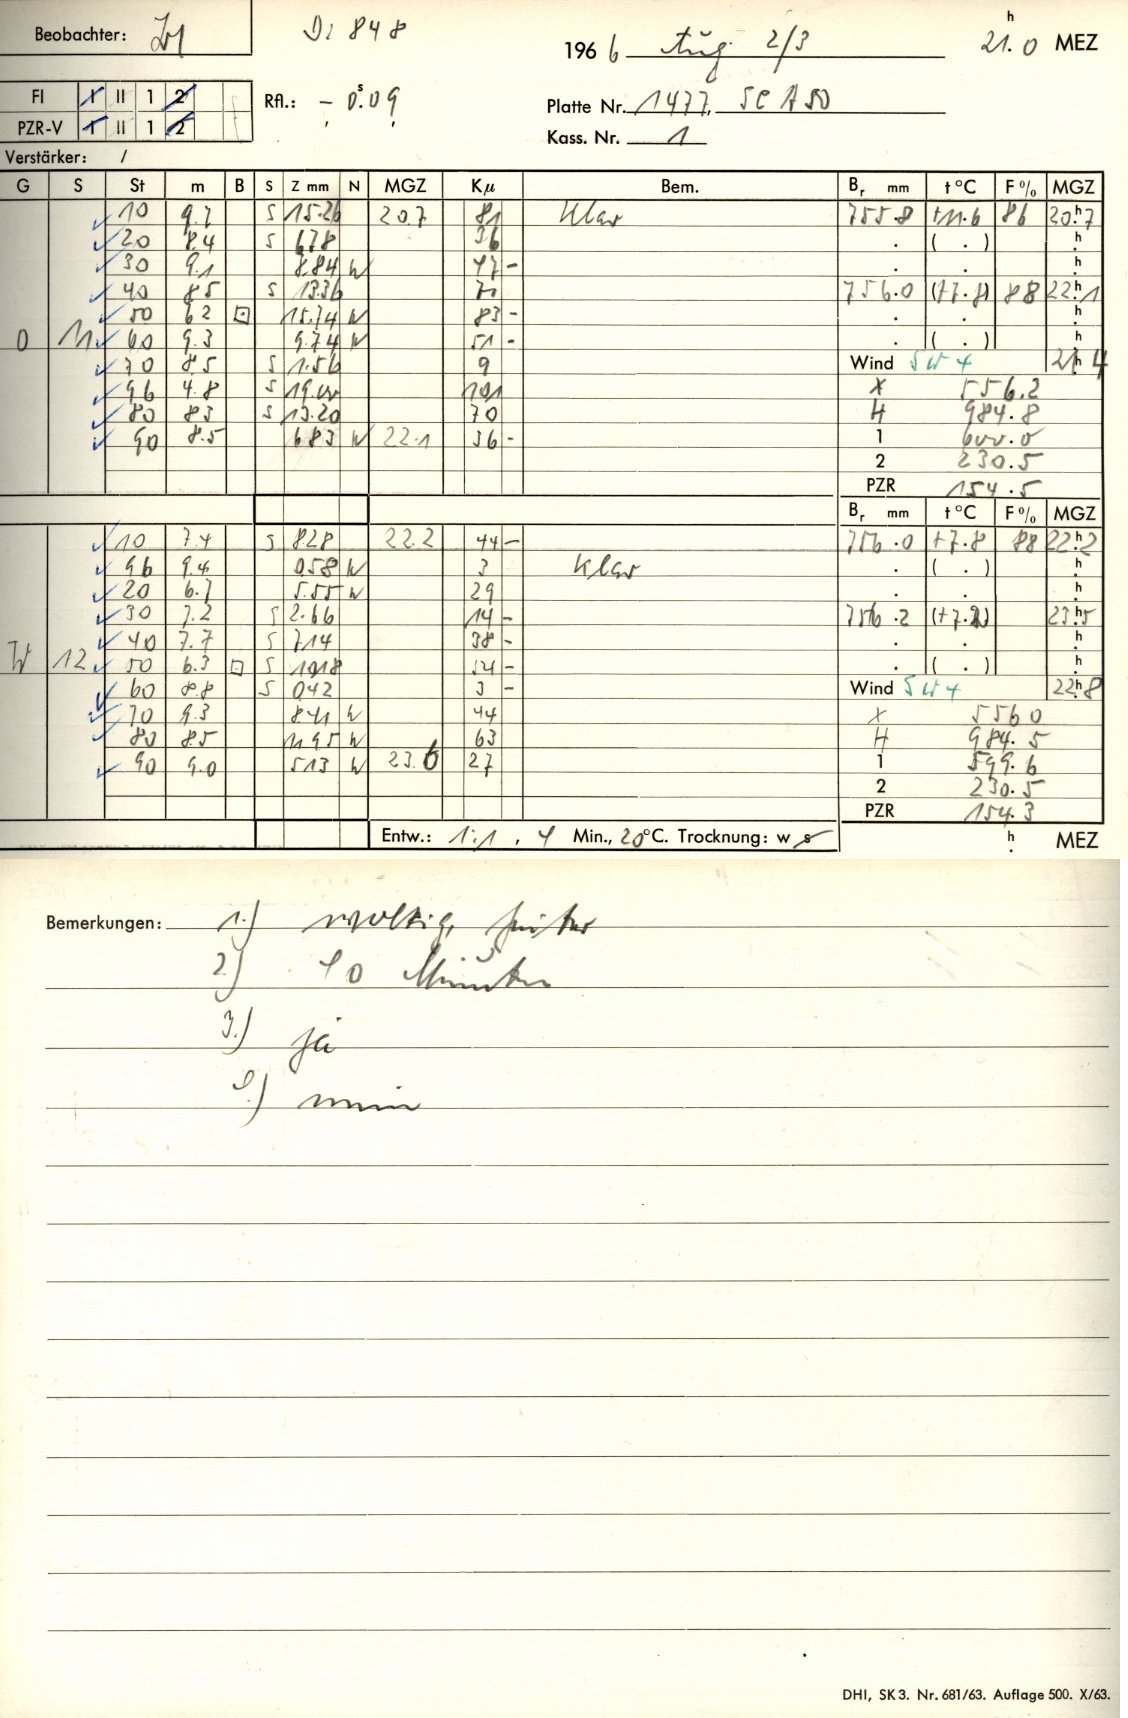 Beobachter:
Di 848
1966 Aug. 2/3 21.0 h MEZ
FI I II 1 2
PZR-V I II 1 2
Rfl.: - 0.09 s
Platte Nr. 1477, SC A 50
Kass. Nr. 1
Verstärker: /
G S St m B S Z mm N MGZ Kμ Bem. Br mm t °C F % MGZ
10 9.7 S 15.26 20.7 81 klar 755.8 +11.6 86 20h.7
20 8.4 S 6.78 36 . ( . ) h
30 9.1 8.84 W 47 - . . h
40 8.5 S 13.36 71 756.0 (+7.8) 88 22h.1
50 6.2 ⊡ 15.74 W 83 - . . h
O 11 60 9.3 9.74 W 51 - . ( . ) h
70 8.5 S 1.56 9 Wind SW 4 21h.4
96 4.8 S 19.00 101 X 556.2
80 8.3 S 13.20 70 H 984.8
90 8.5 6.83 W 22.1 36 - 1 600.0
2 230.5
PZR 154.5
Br mm t °C F % MGZ
10 7.4 S 8.28 22.2 44 - 756.0 +7.8 88 22h.2
96 9.4 0.58 W 3 klar . ( . ) h
20 6.7 5.55 W 29 . . h
30 7.2 S 2.66 14 - 756.2 (+7.2) 23h.5
40 7.7 S 7.14 38 - . . h
W 12 50 6.3 ⊡ S 10.18 54 - . ( . ) h
60 8.8 S 0.42 3 - Wind SW 4 22h.8
70 9.3 8.41 W 44 X 556.0
80 8.5 11.95 W 63 H 984.5
90 9.0 5.13 W 23.6 27 1 599.6
2 230.5
PZR 154.3
Entw.: 1:1, 4 Min., 20 °C. Trocknung: w s h MEZ
Bemerkungen: 1.) wolkig, heiter
2.) 40 Minuten
3.) ja
4.) nein
DHI, SK 3. Nr. 681/63. Auflage 500. X/63.